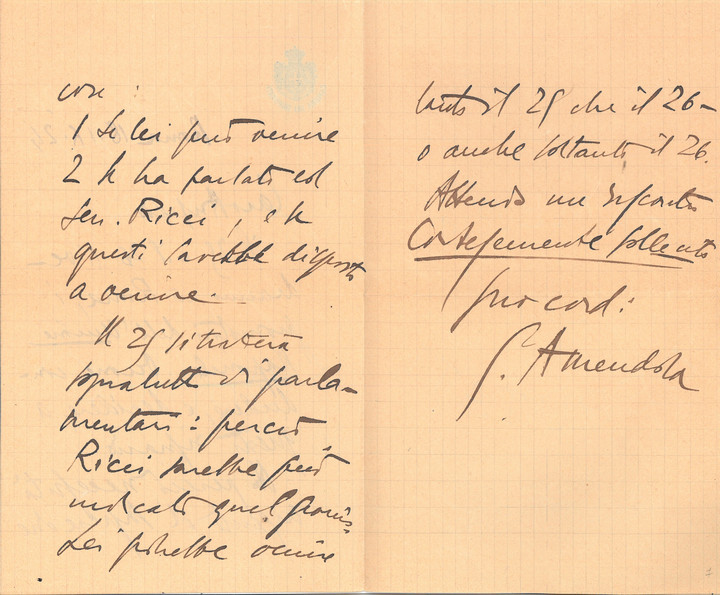 cose:
1 Se lei può venire
2 Se ha parlato col
Sen. Ricci, e se
questi sarebbe disposto
a venire.
Il 25 si tratterà
sopratutto di parla-
mentari: perciò
Ricci sarebbe più
indicato quel giorno.
Lei potrebbe venire
tanto il 25 che il 26-
o anche soltanto il 26.
Attendo un riscontro
Cortesemente sollecito
Suo cord:
G. Amendola